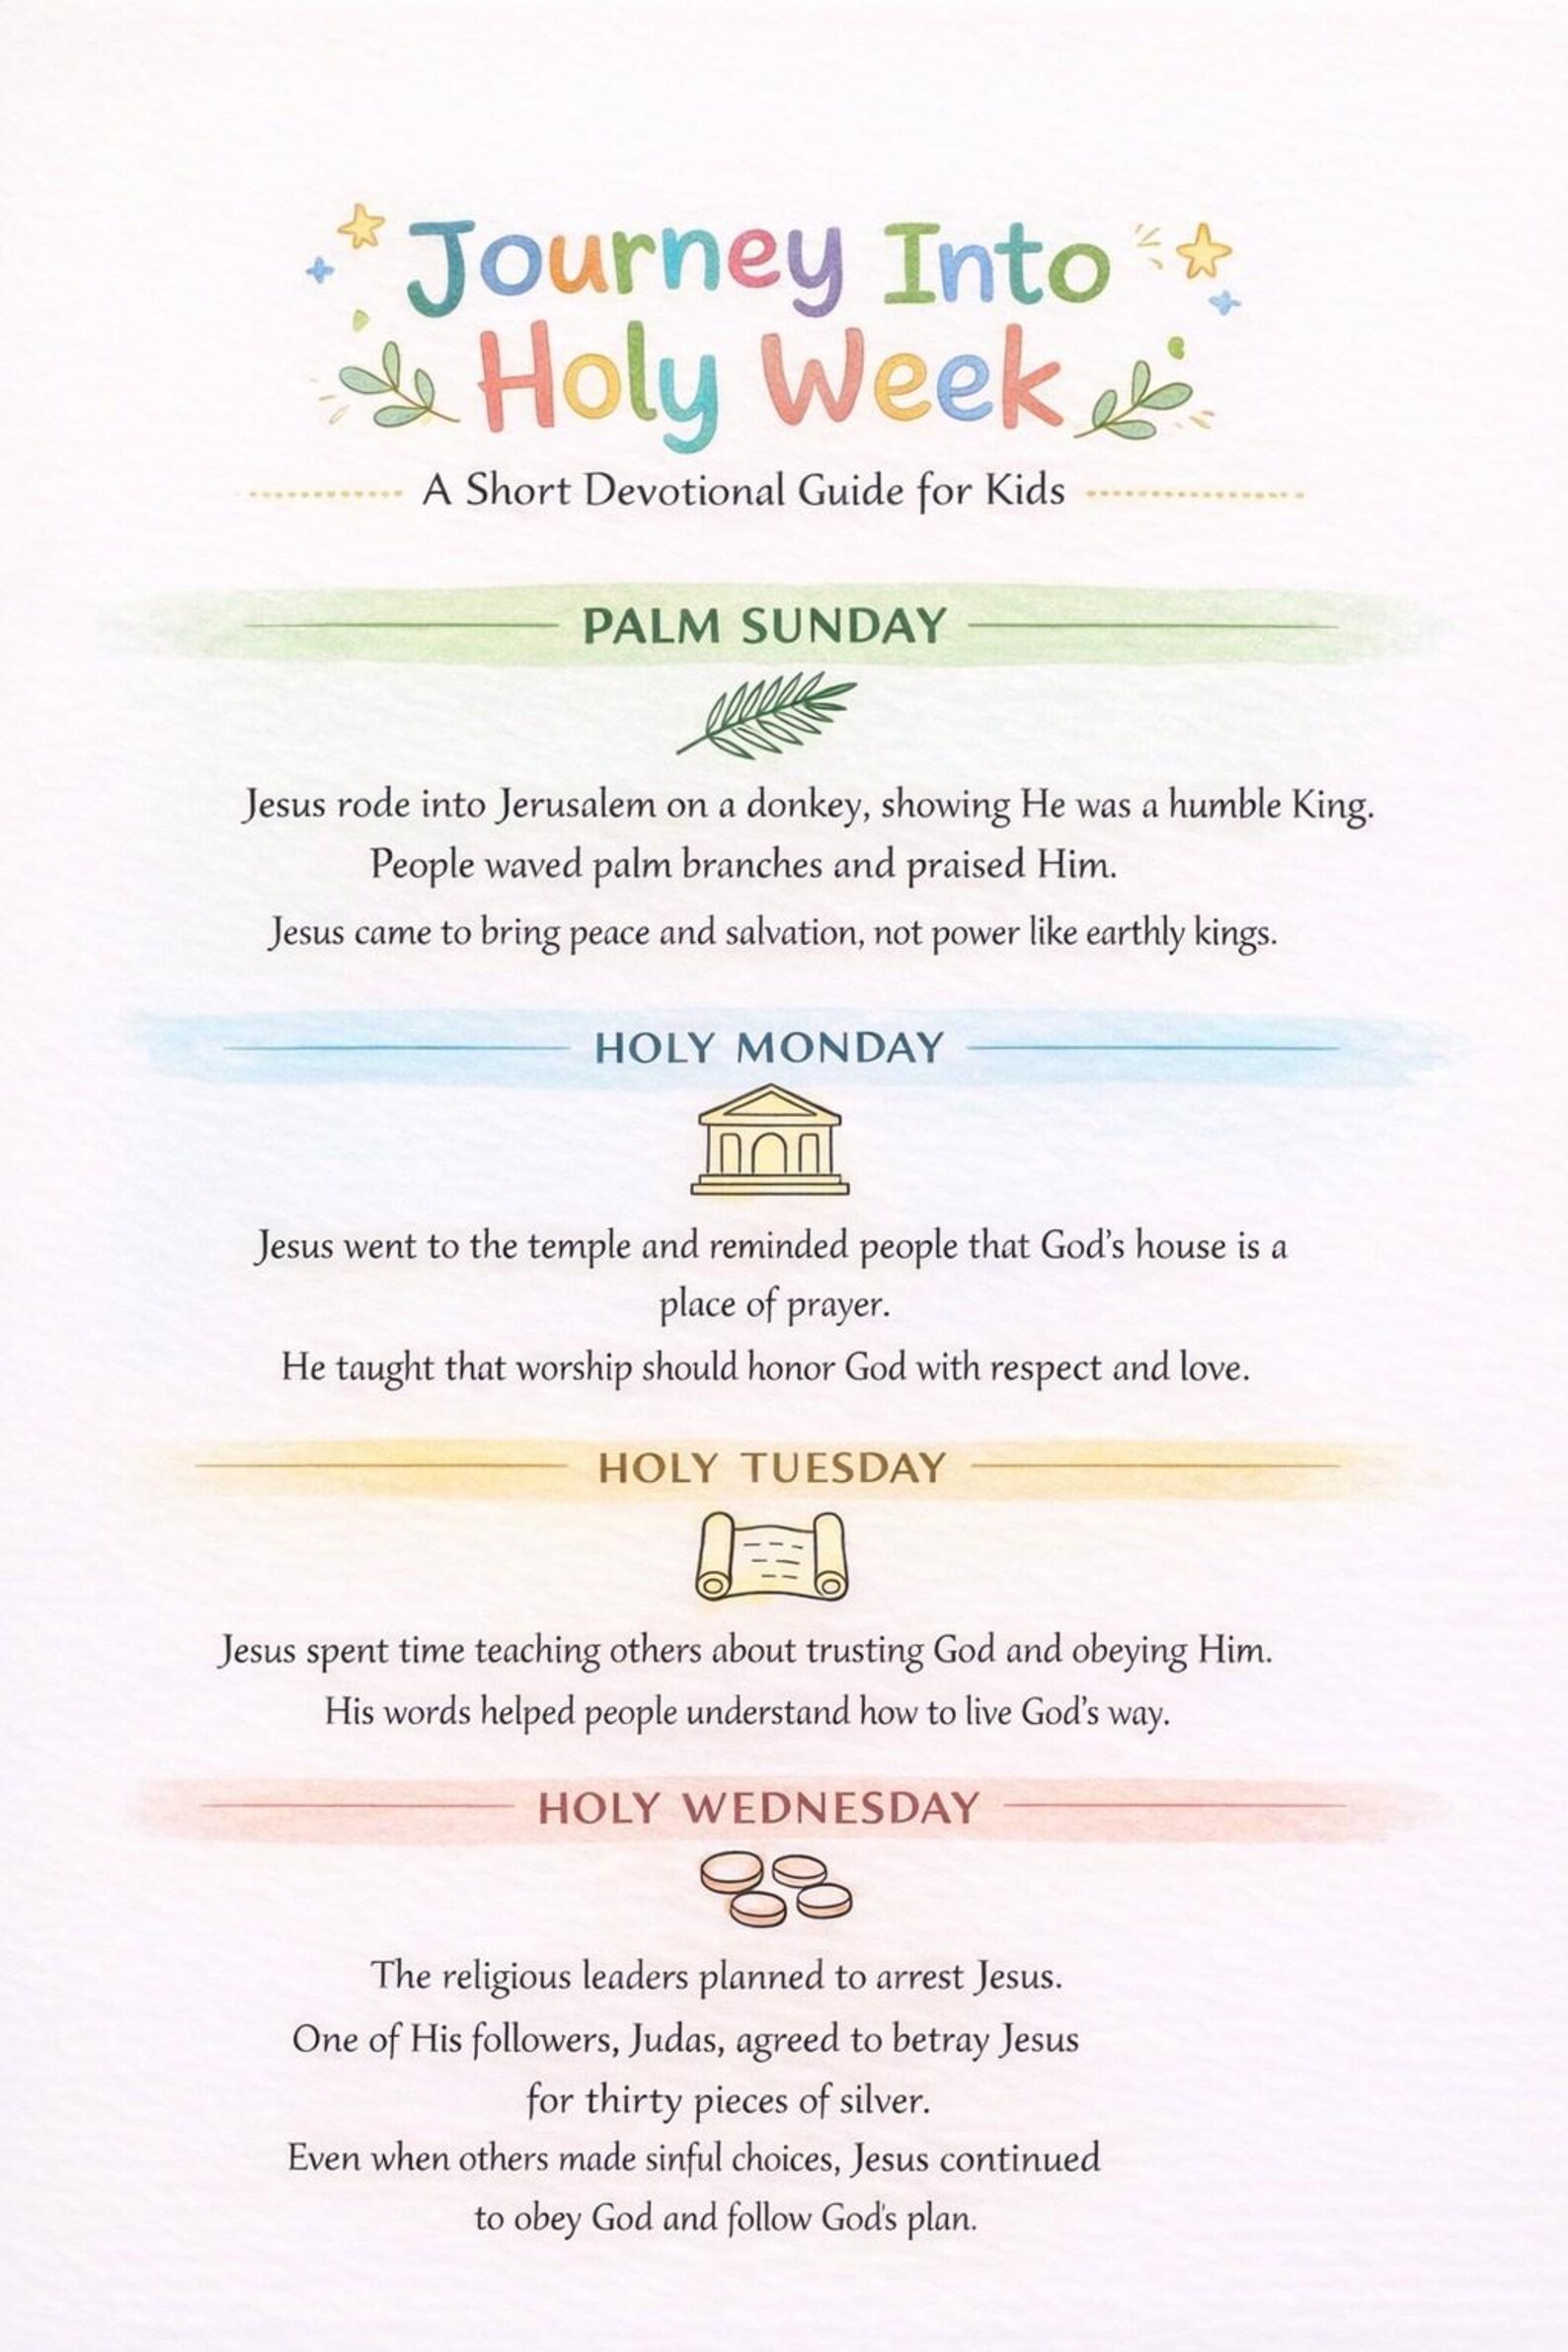 Journey Into
Holy Week
A Short Devotional Guide for Kids
PALM SUNDAY
Jesus rode into Jerusalem on a donkey, showing He was a humble King.
People waved palm branches and praised Him.
Jesus came to bring peace and salvation, not power like earthly kings.
HOLY MONDAY
Jesus went to the temple and reminded people that God’s house is a
place of prayer.
He taught that worship should honor God with respect and love.
HOLY TUESDAY
Jesus spent time teaching others about trusting God and obeying Him.
His words helped people understand how to live God’s way.
HOLY WEDNESDAY
The religious leaders planned to arrest Jesus.
One of His followers, Judas, agreed to betray Jesus
for thirty pieces of silver.
Even when others made sinful choices, Jesus continued
to obey God and follow God's plan.